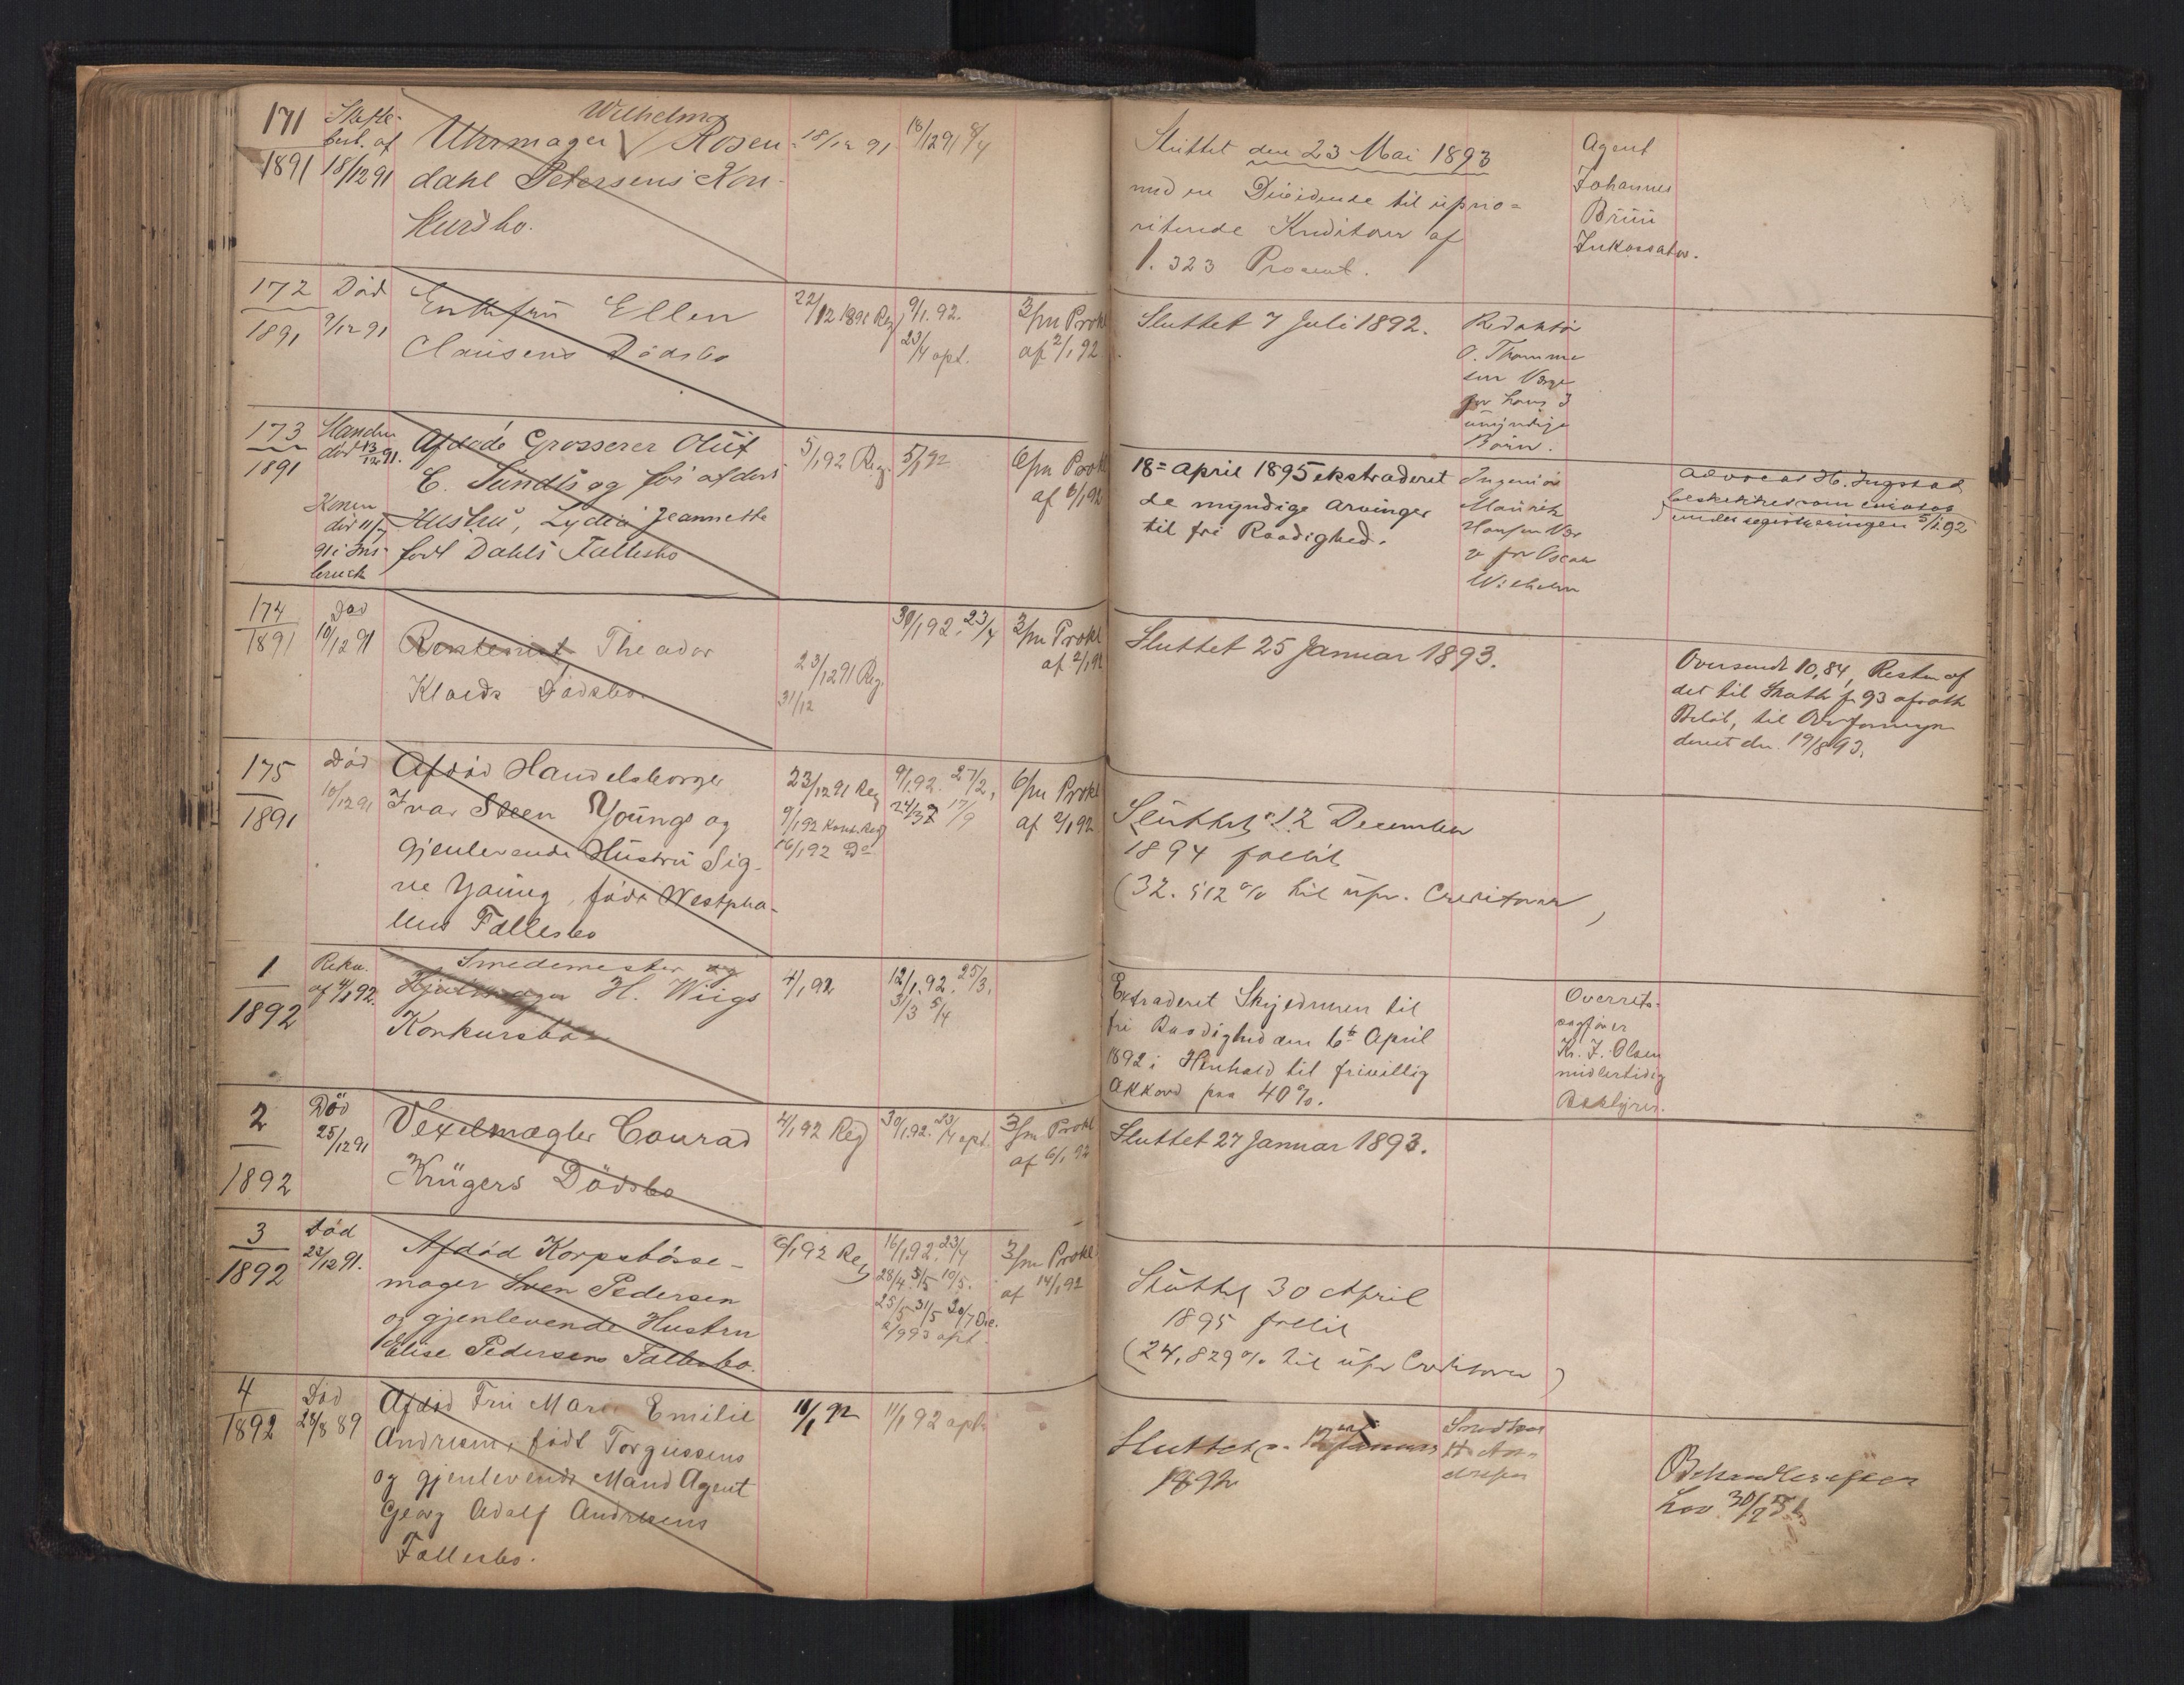 171
1891
Skifte-
besl. af
18/12 91
Wilhelm
Uhrmager Rosen-
dahl Petersens Kon-
kursbo.
18/12 91
18/12 91 8/4
Sluttet den 23 Mai 1893
med en Dividende til uprio-
riterede Kreditorer af
1.323 Procent.
Agent
Johannes
Bruu
Inkassator.
172
1891
Död
9/12 91
Enkefru Ellen
Clausens Dödsbo
22/12 1891 Reg.
9/1.92.
23/4 opt.
3/m Prokl
af 2/1 92.
Sluttet 7 Juli 1892.
Redaktör
O. Thomme
sen Værge
for hans 3
umyndige
Börn.
173
1891
Manden
död 13/12 91.
Konen
död 11/7
91 i Ins-
bruck
Afdöde Grosserer Oluf
E. Sundts og för afdöde
Hustru, Lydia Jeannette
födt Dahls Fællesbo
5/1 92 Reg.
5/1 92
6/m Prokl
af 6/1 92
18= April 1895 ekstraderet
de myndige Arvinger
til fri Raadighed.
Ingeniör
Mauritz
Hansen Vær
ge for Oscar
Wilhelm
Advocat H. Ingstad
beskikket som curator
under registreringen 5/1.92
174
1891
Död
10/12 91
Rentenist Theodor
Kloeds Dödsbo.
23/12 91 Reg.
31/12
30/1 92. 23/4
3/m Prokl
af 2/1 92
Sluttet 25 Januar 1893.
Oversendt 10,84, Resten af
det til Skatt for 93 afsatte
Belöb, til Overformyn
deriet den 19/8 93.
175
1891
Död
10/12 91
Afdöd Handelsborger
Ivar Steen Youngs og
gjenlevende Hustru Sig-
ne Young, födt Westpha-
lens Fællesbo
23/12 91 Reg
9/1 92 Kont. Reg
16/1 92 Do
9/1.92. 27/2,
24/3 17/9
6/m Prokl
af 2/1 92
Sluttet 12 December
1894 fallit
(32.512 % til upr. Creditorer)
1
1892
Rekv.
af 4/1 92.
Smedemester og
Hjulmager H. Wiigs
Konkursbo
4/1 92
12/1.92. 25/3.
31/3 5/4
Extraderet Skyldneren til
fri Raadighed den 6te April
1892 i Henhold til frivillig
Akkord paa 40%.
Overrets-
sagförer
Kr. J. Olsen
midlertidig
Bestyrer.
2
1892
Död
25/12 91
Vexelmægler Conrad
Krügers Dödsbo
4/1 92 Reg
30/1.92. 23/4 opt.
3/m Prokl
af 6/1 92
Sluttet 27 Januar 1893.
3
1892
Död
23/12 91.
Afdöd Korpsbösse-
mager Sven Pedersen
og gjenlevende Hustru
Elise Pedersens Fællesbo.
6/1 92 Reg
16/1.92. 23/4
28/4. 3/5 10/5.
25/5 31/5 20/7 Div.
2/9 93 opt.
3/m Prokl
af 14/1 92
Sluttet 30 April
1895 fallit
(24,829 % til upr Creditorer)
4
1892
Död
28/8 89
Afdöd Fru Marie Emilie
Andresen, födt Torgussens
og gjenlevende Mand Agent
Georg Adolf Andresens
Fællesbo.
11/1 92
11/1 92 opt.
Sluttet 12 Januar
1892
Behandles efter
Lov 30/7